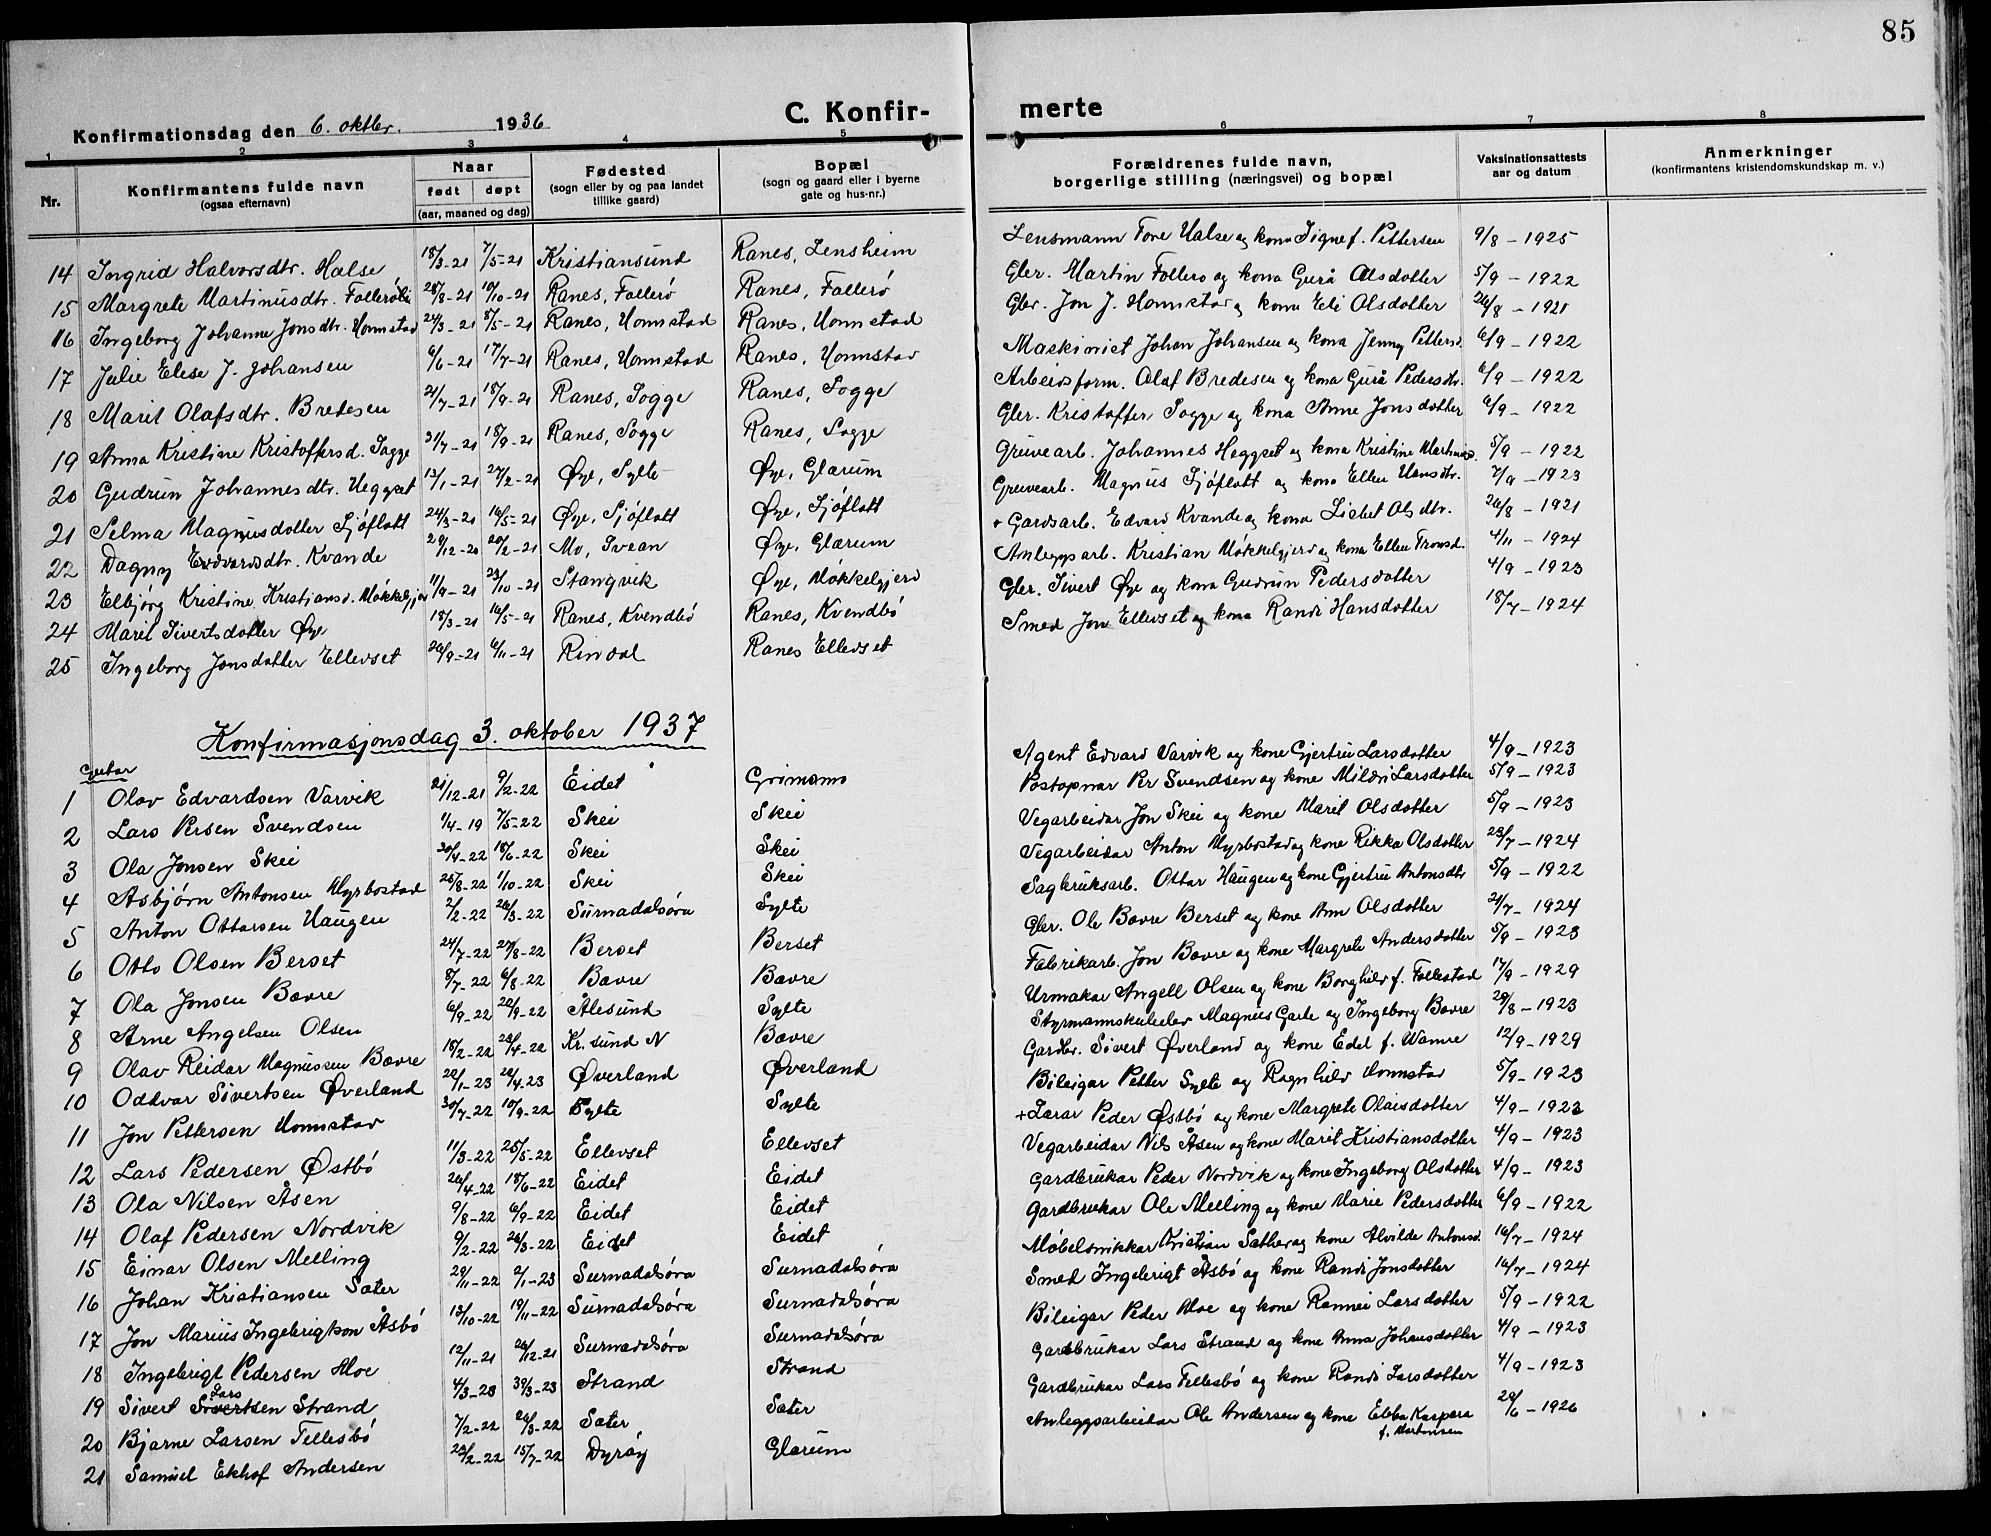 85
Konfirmationsdag den 6. oktbr. 1936
C. Konfir-
merte
1 2 3 4 5 6 7 8
Nr.
Konfirmantens fulde navn (ogsaa efternavn)
Naar født døpt (aar, maaned og dag)
Fødested (sogn eller by og paa landet tillike gaard)
Bopæl (sogn og gaard eller i byerne gate og hus-nr.)
Forældrenes fulde navn, borgerlige stilling (næringsvei) og bopæl
Vaksinationsattests aar og datum
Anmerkninger (konfirmantens kristendomskundskap m. v.)
14 Ingrid Halvorsdtr. Halse 18/3-21 7/5-21 Kristiansund Ranes, Lensheim Lensmann Tore Halse og kona Signe f. Pettersen 9/8-1925
15 Margrete Martinusdtr. 28/8-21 10/10-21 Ranes, Follerø Ranes, Follerø Gbr. Martin Follerø og kona Gurå Olsdotter 5/9-1922
16 Ingeborg Johanne Jonsdtr. Honnstad 24/3-21 8/5-21 Ranes, Honnstad Ranes, Honnstad Gbr. Jon J. Honnstad og kona Eli Olsdotter 26/8-1921
17 Julie Elese J. Johansen 6/6-21 17/7-21 Ranes, Honnstad Ranes, Honnstad Maskinist Johan Johansen og kona Jenny Pettersd. 6/9-1922
18 Marit Olafsdtr. Bredesen 21/7-21 18/9-21 Ranes, Sogge Ranes, Sogge Arbeidsform. Olaf Bredesen og kona Gurå Pedersdtr. 6/9-1922
19 Anna Kristine Kristoffersd. Sogge 31/7-21 18/9-21 Ranes, Sogge Ranes, Sogge Gbr. Kristoffer Sogge og kona Anne Jonsdotter 6/9-1922
20 Gudrun Johannesdtr. Heggset 13/1-21 27/2-21 Øye, Sylte Øye, Glærum Gruvearb. Johannes Heggset og kona Kristine 5/9-1922
21 Selma Magnusdotter Sjøflott 24/3-21 16/5-21 Øye, Sjøflott Øye, Sjøflott Gruvearb. Magnus Sjøflott og kona Ellen Hansdtr. 7/9-1923
22 Dagny Edvardsdtr. Kvande 29/12-20 20/2-21 Mo, Svean Øye, Glærum + Gardsarb. Edvard Kvande og kona Lisbet Olsdtr. 26/8-1921
23 Elbjørg Kristine Kristiansd. Møkkelgjerd 11/9-21 23/10-21 Stangvik Øye, Møkkelgjerd Anleggsarb. Kristian Møkkelgjerd og kona Ellen Tronsd. 4/11-1924
24 Marit Sivertsdotter Øye 18/3-21 16/5-21 Ranes, Kvendbø Ranes, Kvendbø Gbr. Sivert Øye og kona Gudrun Pedersdotter 4/9-1923
25 Ingeborg Jonsdotter Ellevset 26/9-21 6/11-21 Rindal Ranes Ellevset Smed Jon Ellevset og kona Randi Hansdotter 18/7-1924
Konfirmasjonsdag 3. oktober 1937
Gutar
1 Olav Edvardsen Varvik 21/12-21 9/2-22 Eidet Grimsmo Agent Edvard Varvik og kone Gjertru Larsdotter 4/9-1923
2 Lars Persen Svendsen 1/4-19 7/5-22 Skei Skei Postopnar Per Svendsen og kone Mildri Larsdotter 5/9-1923
3 Ola Jonsen Skei 30/4-22 18/6-22 Skei Skei Vegarbeidar Jon Skei og kone Marit Olsdotter 5/9-1923
4 Asbjørn Antonsen Myrbostad 25/8-22 1/10-22 Skei Skei Vegarbeidar Anton Myrbostad og kone Rikka Olsdotter 23/7-1924
5 Anton Ottarsen Haugen 2/2-22 26/3-22 Surnadalsøra Sylte Sagbruksarb. Ottar Haugen og kone Gjertru Antonsdtr 5/9-1922
6 Otto Olsen Berset 24/7-22 27/8-22 Berset Berset Gbr. Ole Bævre Berset og kone Ann Olsdotter 21/7-1924
7 Ola Jonsen Bævre 8/7-22 6/8-22 Bævre Bævre Fabrikarb. Jon Bævre og kone Margrete Andersdotter 5/9-1923
8 Arne Angelsen Olsen 6/9-22 20/9-22 Ålesund Sylte Urmakar Angell Olsen og kone Borghild f. Follestad 17/9-1929
9 Olav Reidar Magnussen Bævre 18/2-22 23/4-22 Kr.sund N Bævre Styrmannskuleelev Magnus Garte og Ingeborg Bævre 29/8-1923
10 Oddvar Sivertsen Øverland 20/1-23 20/4-23 Øverland Øverland Gardbr. Sivert Øverland og kone Edel f. Wamre 12/9-1929
11 Jon Pettersen Honnstad 30/7-22 10/9-22 Sylte Sylte Bileigar Petter Sylte og Ragnhild Honnstad 5/9-1923
12 Lars Pedersen Østbø 11/3-22 25/5-22 Ellevset Ellevset + Lærar Peder Østbø og kone Margrete Olaisdotter 4/9-1923
13 Ola Nilsen Åsen 20/4-22 18/6-22 Eidet Eidet Vegarbeidar Nils Åsen og kone Marit Kristiansdotter 4/9-1923
14 Olaf Pedersen Nordvik 9/8-22 6/9-22 Eidet Eidet Gardbrukar Peder Nordvik og kone Ingeborg Olsdotter 4/9-1923
15 Einar Olsen Melling 9/2-22 26/3-22 Eidet Eidet Gardbrukar Ole Melling og kone Marie Pedersdotter 6/9-1922
16 Johan Kristiansen Sæter 29/11-22 2/1-23 Surnadalsøra Surnadalsøra Møbelsnikkar Kristian Sæther og kone Alvilde Antonsd. 16/7-1924
17 Jon Marius Ingebrigtson Åsbø 13/10-22 19/11-22 Surnadalsøra Surnadalsøra Smed Ingebrigt Åsbø og kone Randi Jonsdotter 16/7-1924
18 Ingebrigt Pedersen Moe 12/11-21 26/12-21 Surnadalsøra Surnadalsøra Bileigar Peder Moe og kone Rannei Larsdotter 5/9-1922
19 Sivert Sivertsen Lars Strand 4/3-23 30/3-23 Strand Strand Gardbrukar Lars Strand og kone Anna Johansdotter 4/9-1923
20 Bjarne Larsen Tellesbø 7/2-22 26/3-22 Sæter Sæter Gardbrukar Lars Tellesbø og kone Randi Larsdotter 4/9-1923
21 Samuel Ekhof Andersen 23/2-22 15/7-22 Dyrøy Glærum Anleggsarbeidar Ole Andersen og kone Ebba Kaspara f. Mortensen 20/6-1926